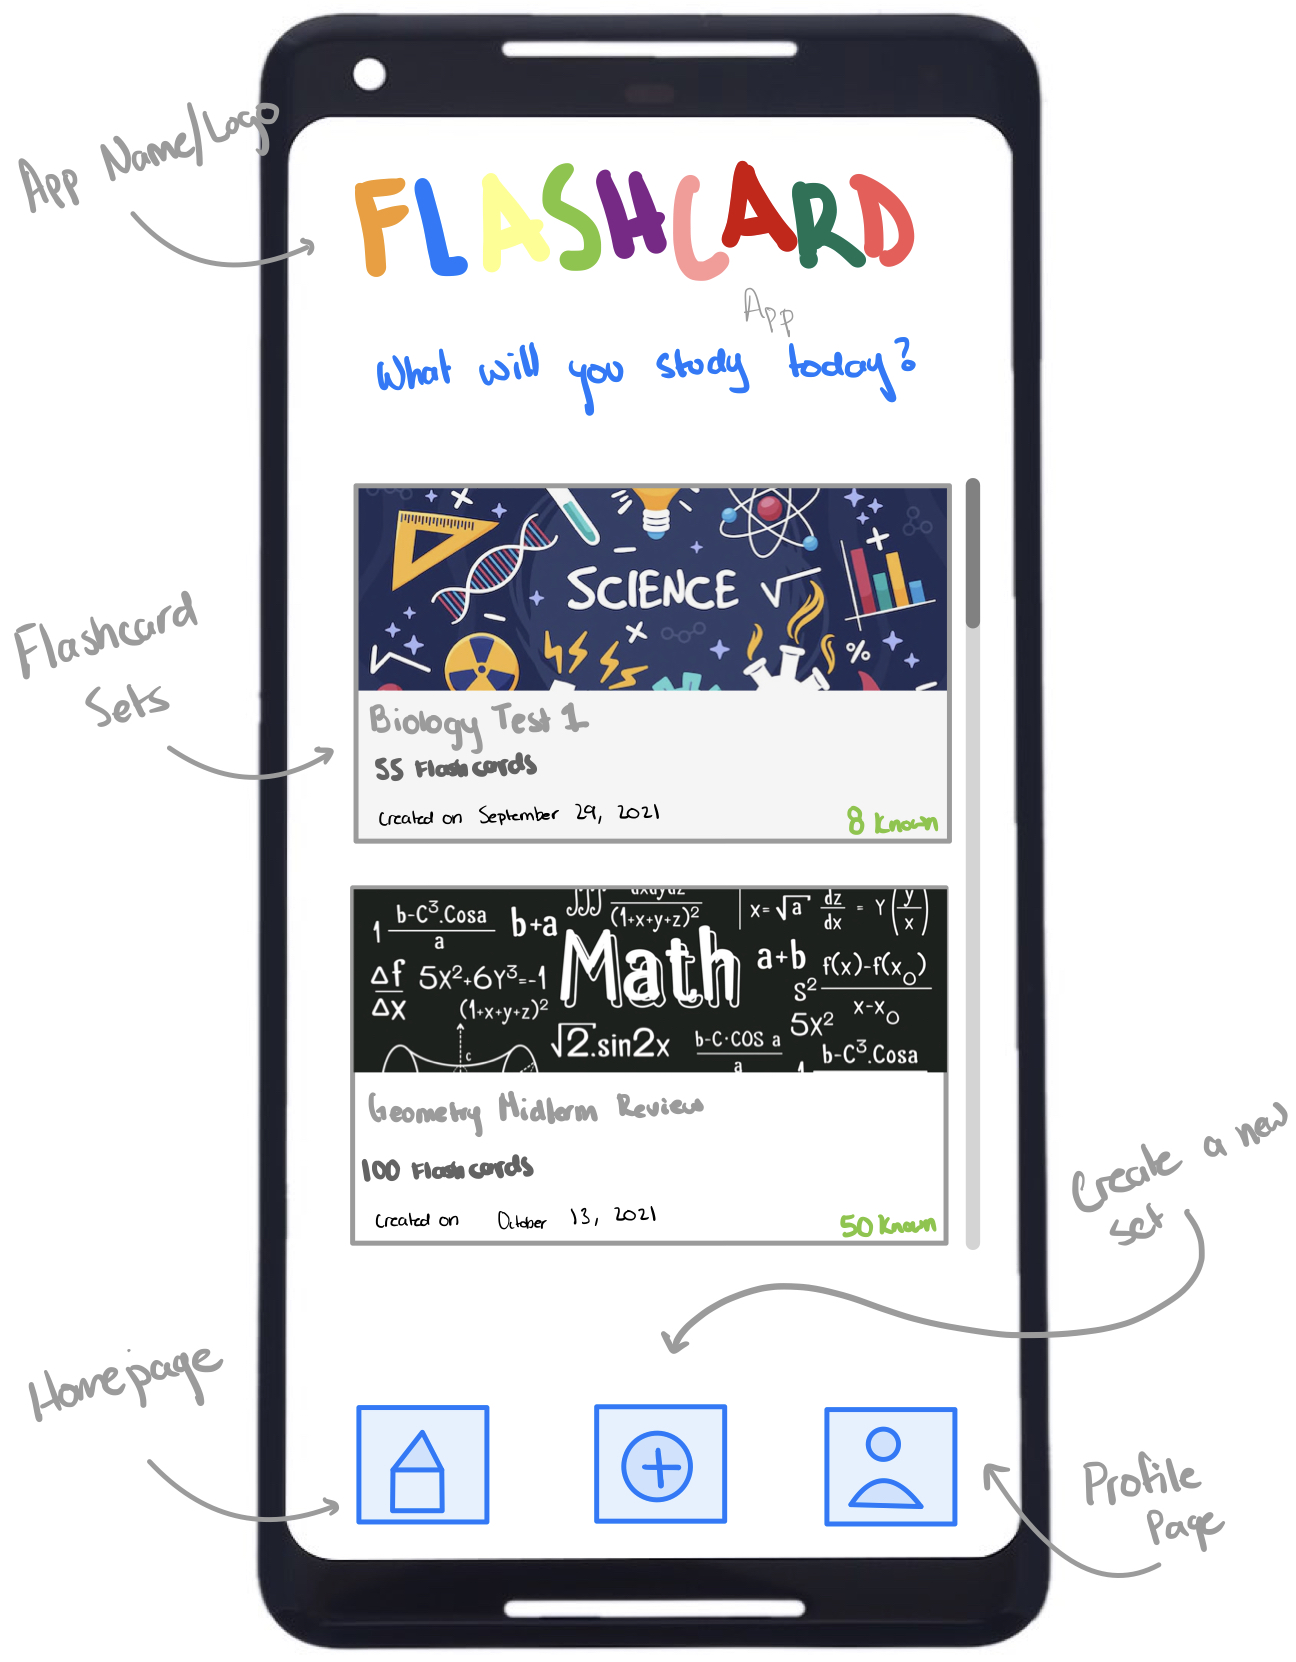 App Name/Logo
FLASHCARD
App
What will you study today?
SCIENCE
√
%
Flashcard
Sets
Biology Test 1
55 Flashcards
Created on September 29, 2021
8 Known
1 b-C³.Cosa
a
b+a
∭ dxdydz
(1+x+y+z)²
x=√a
dz
dx
= Y(y
x)
Δf
Δx
5x²+6Y³=-1
(1+x+y+z)²
Math
a+b
S² f(x)-f(x₀)
x-x₀
5x²
√2.sin2x
b-C·COS a
a
1 b-C³.Cosa
c
Geometry Midterm Review
100 Flashcards
Created on October 13, 2021
50 Known
Create a new
set
Homepage
Profile
Page